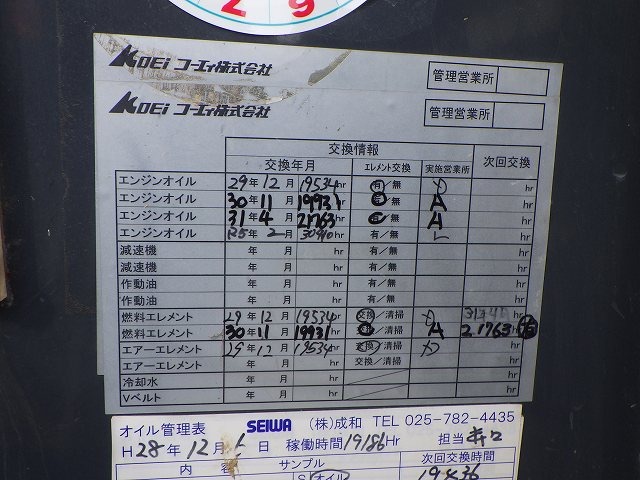 29
KOEi コーエィ株式会社 管理営業所
KOEi コーエィ株式会社 管理営業所
交換情報
交換年月 エレメント交換 実施営業所 次回交換
エンジンオイル 29年12月 19534hr 有/無 hr
エンジンオイル 30年11月 19931hr 有/無 A hr
エンジンオイル 31年4月 21763hr 有/無 A hr
エンジンオイル R5年2月 hr 有/無 hr
減速機 年 月 hr 有/無 hr
減速機 年 月 hr 有/無 hr
作動油 年 月 hr 有/無 hr
作動油 年 月 hr 有/無 hr
燃料エレメント 29年12月 19534hr 交換/清掃 hr
燃料エレメント 30年11月 19931hr /清掃 A 21763hr
エアーエレメント 29年12月 19534hr 交換/清掃 hr
エアーエレメント 年 月 hr 交換/清掃 hr
冷却水 年 月 hr hr
Vベルト 年 月 hr hr
オイル管理表 SEIWA (株)成和 TEL 025-782-4435
H28年12月 日 稼働時間19186Hr 担当
内容 サンプル 次回交換時間
オイル